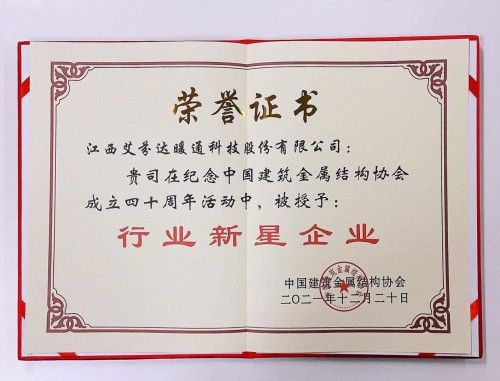 荣誉证书
江西艾芬达暖通科技股份有限公司：
贵司在纪念中国建筑金属结构协会
成立四十周年活动中，被授予：
行业新星企业
中国建筑金属结构协会
二〇二一年十二月二十日